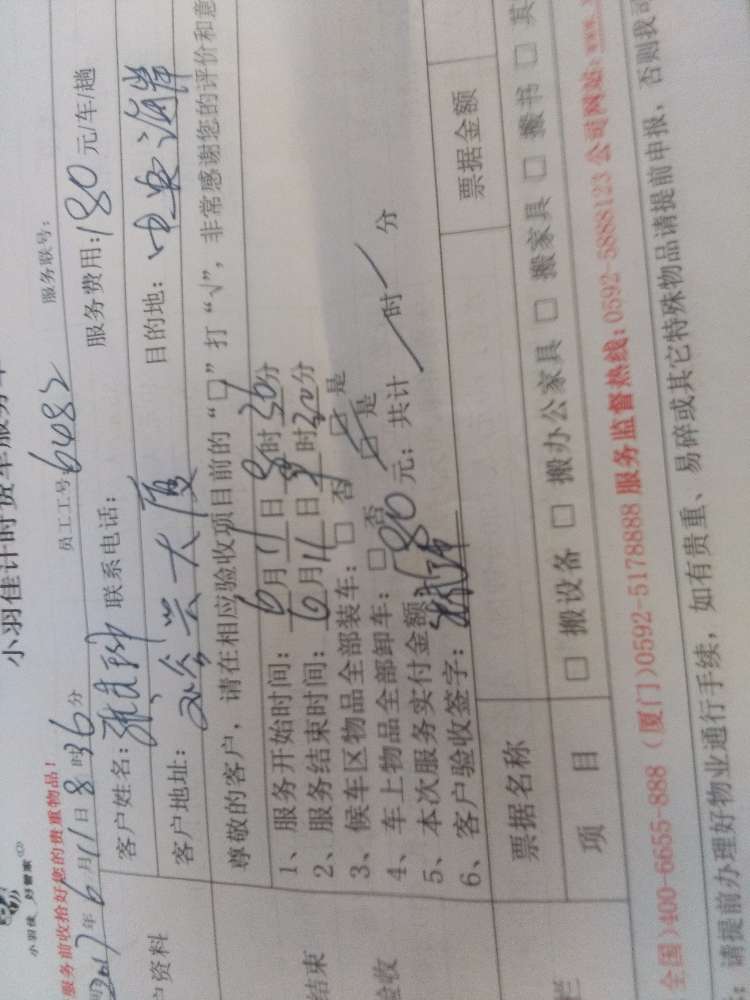 小羽佳计时货车服务单
小羽佳 好管家
服务前收拾好您的贵重物品！
2017年6月11日8时36分 员工工号：6482 服务联号：
客户姓名： 联系电话： 服务费用：180元/车/趟
户资料
客户地址： 大厦 目的地：中央海岸
尊敬的客户，请在相应验收项目前的“□”打“√”，非常感谢您的评价和意
1、服务开始时间：6月11日8时36分
2、服务结束时间：6月11日 时30分
3、候车区物品全部装车：□否 □是
4、车上物品全部卸车：□否 □是
5、本次服务实付金额：180元；共计 时 分
6、客户验收签字：
结束
验收
票据名称 票据金额
项 目 □搬设备 □搬办公家具 □搬家具 □搬书 □其
栏
全国)400-6655-888 (厦门)0592-5178888 服务监督热线：0592-5888123 公司网站：www.
：请提前办理好物业通行手续，如有贵重、易碎或其它特殊物品请提前申报，否则我司